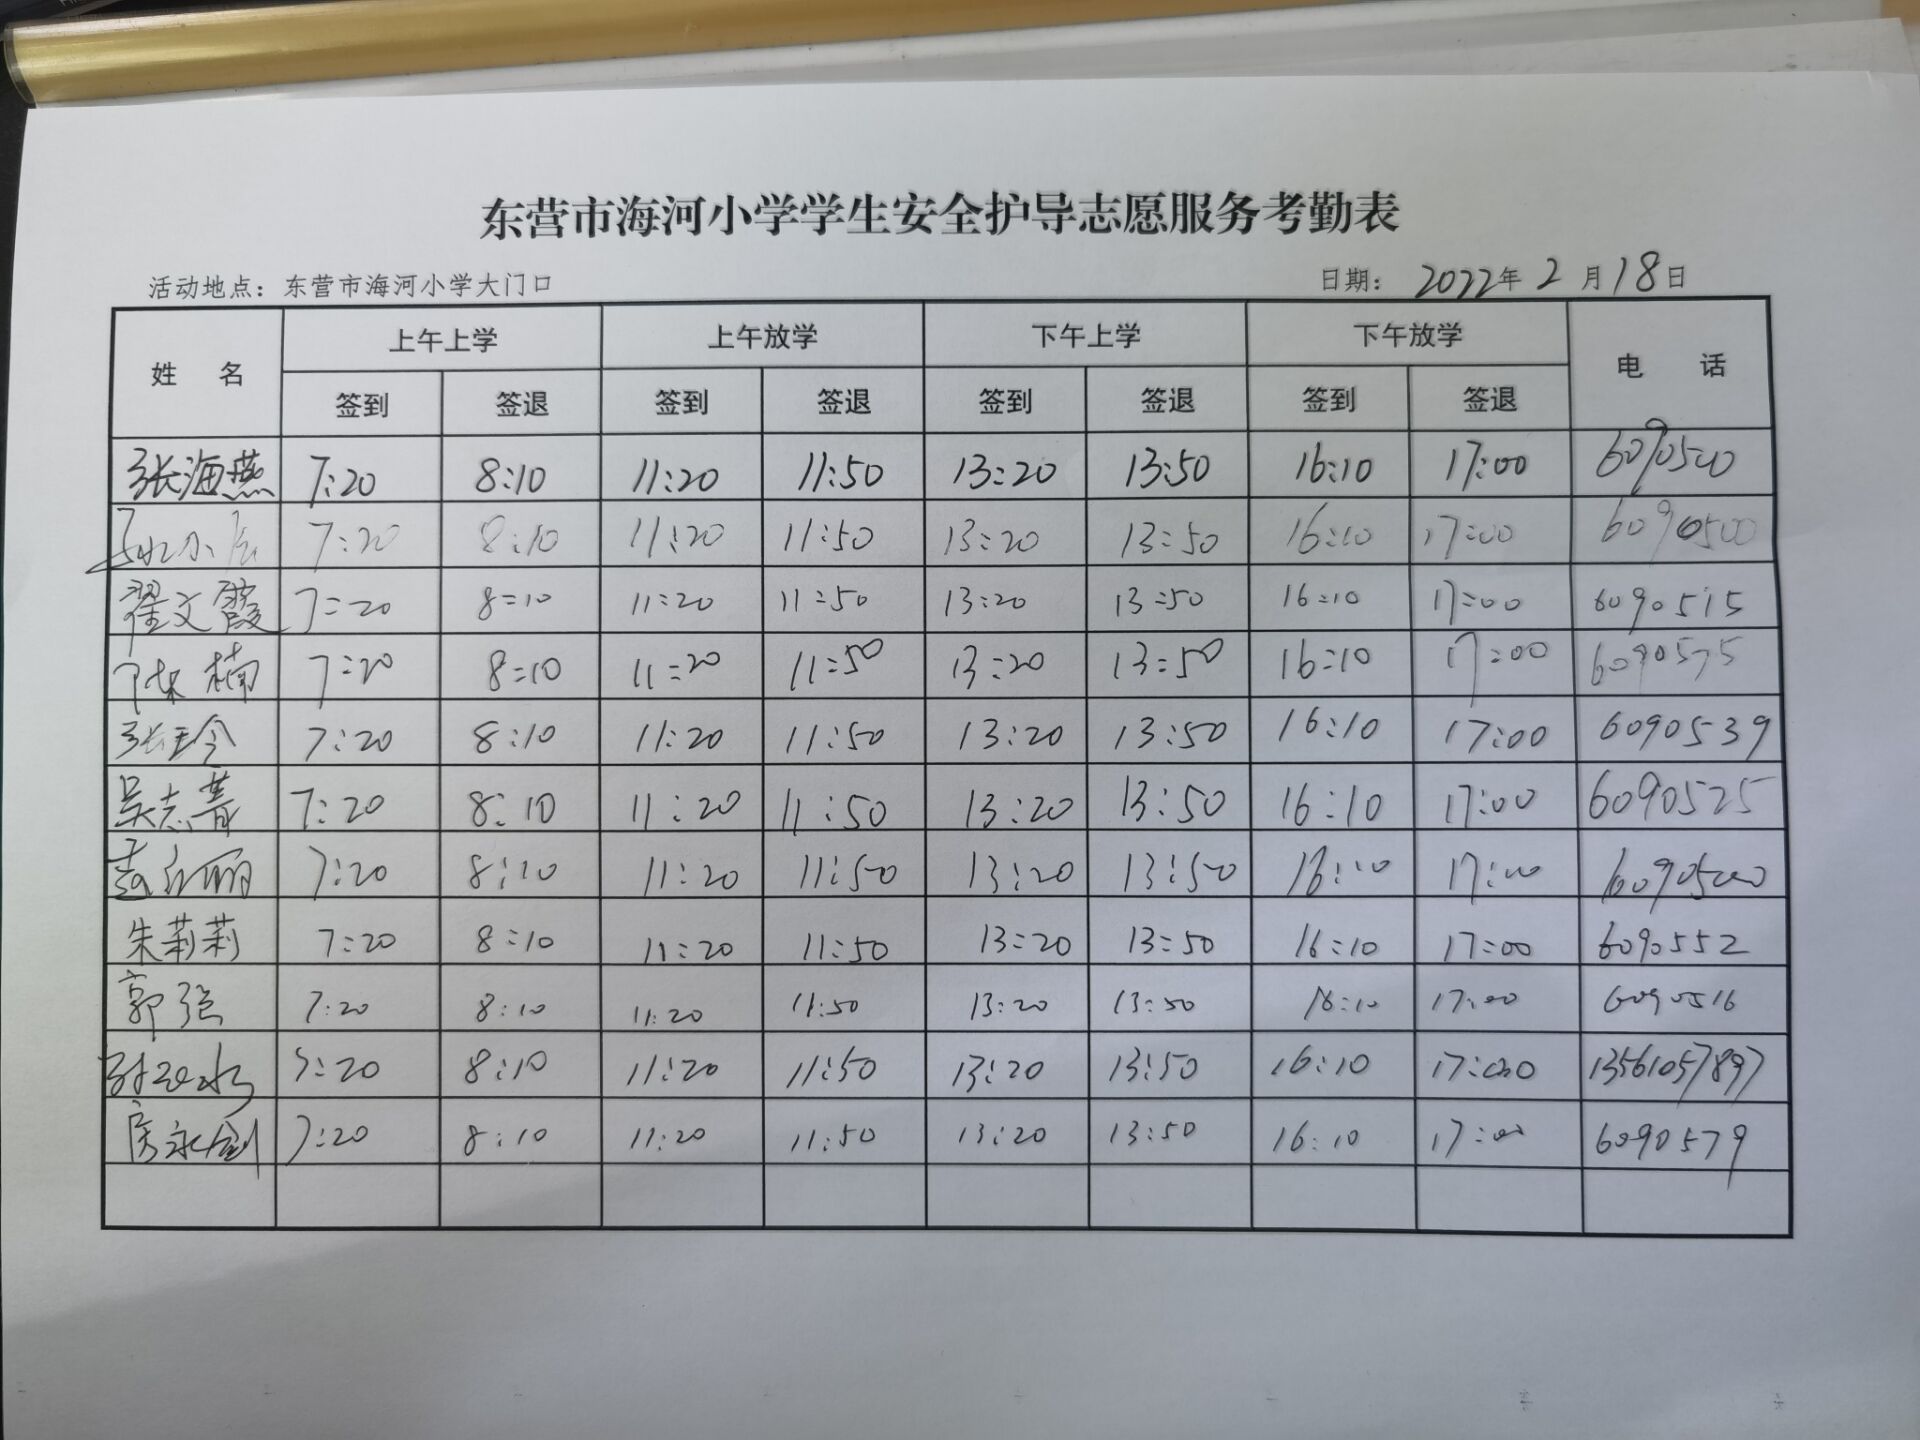 东营市海河小学学生安全护导志愿服务考勤表
活动地点：东营市海河小学大门口 日期： 2022年 2 月 18日
姓 名 上午上学 上午放学 下午上学 下午放学 电 话
签到 签退 签到 签退 签到 签退 签到 签退
张海燕 7:20 8:10 11:20 11:50 13:20 13:50 16:10 17:00 6090500
7:20 8:10 11:20 11:50 13:20 13:50 16:10 17:00 6090500
翟文霞 7:20 8:10 11:20 11:50 13:20 13:50 16:10 17:00 6090515
陈楠 7:20 8:10 11:20 11:50 13:20 13:50 16:10 17:00 6090575
张玲 7:20 8:10 11:20 11:50 13:20 13:50 16:10 17:00 6090539
吴志菁 7:20 8:10 11:20 11:50 13:20 13:50 16:10 17:00 6090525
7:20 8:10 11:20 11:50 13:20 13:50 16:10 17:00 6090500
朱莉莉 7:20 8:10 11:20 11:50 13:20 13:50 16:10 17:00 6090552
郭强 7:20 8:10 11:20 11:50 13:20 13:50 16:10 17:00 6090516
7:20 8:10 11:20 11:50 13:20 13:50 16:10 17:00 13561057897
7:20 8:10 11:20 11:50 13:20 13:50 16:10 17:00 6090579